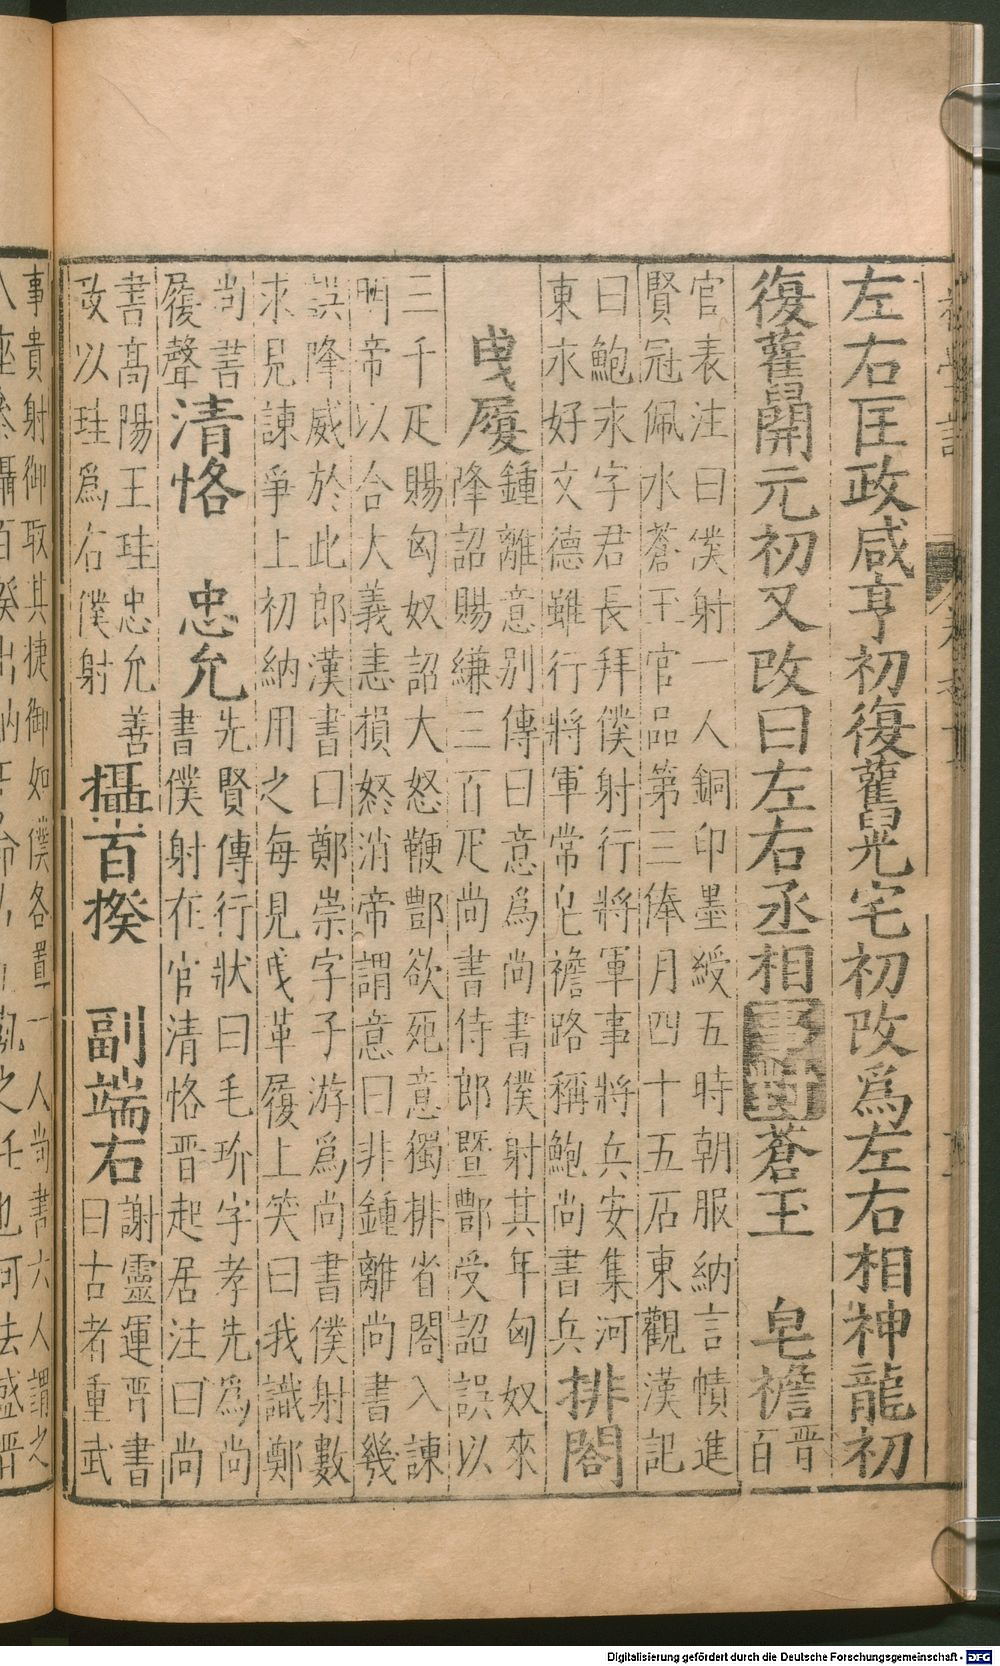 左右匡政咸亨初復舊晃宅初改爲左右相神龍初
復舊開元初又改曰左右丞相事對蒼玉　皂襜晉百
官表注曰僕射一人銅印墨綬五時朝服納言幘進
賢冠佩水蒼玉官品第三俸月四十五石東觀漢記
曰鮑永字君長拜僕射行將軍事將兵安集河
東永好文德雖行將軍常皂襜路稱鮑尚書兵
排閣
曳履
鍾離意別傳曰意爲尚書僕射其年匈奴來
降詔賜縑三百疋尚書侍郎暨酆受詔誤以
三千疋賜匈奴詔大怒鞭酆欲死意獨排省閣入諫
明帝以合大義恚損怒消帝謂意曰非鍾離尚書幾
誤降威於此郎漢書曰鄭崇字子游爲尚書僕射數
求見諫爭上初納用之每見曳革履上笑曰我識鄭
尚書
履聲
清恪　忠允
先賢傳行狀曰毛玠字孝先爲尚
書僕射在官清恪晉起居注曰尚
書高陽王珪忠允善
改以珪爲右僕射
攝百揆　副端右
謝靈運晉書
曰古者重武
事貴射御取其捷御如僕各置一人尚書六人謂之
Digitalisierung gefördert durch die Deutsche Forschungsgemeinschaft - DFG